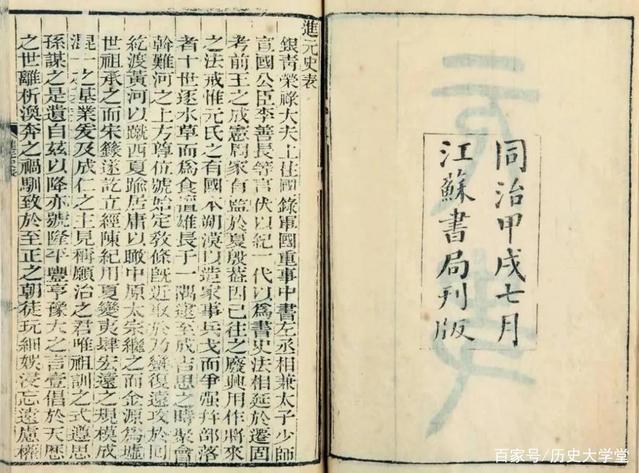 同治甲戌七月
江蘇書局刊版
進元史表
銀青榮祿大夫上柱國錄軍國重事中書左丞相兼太子少師
宣國公臣李善長等言伏以紀一代以爲書史法相延於遷固
考前王之成憲周家有監於夏殷葢因已往之廢興用作將來
之法戒惟元氏之有國本朔漠以造家事兵戈而爭强幷部落
者十世逐水草而爲食擅雄長于一隅逮至成吉思之時聚會
斡難河之上方尊位號始定敎條旣近取於乃蠻復遠攻於回
紇渡黃河以蹴西夏踰居庸以瞰中原太宗繼之而金源爲墟
世祖承之而宋籙遂訖立經陳紀用夏變夷肆宏遠之規模成
混一之基業爰及成仁之主見稱願治之君唯祖訓之式遵思
孫謀之是遺自兹以降亦號隆平豐亨豫大之言壹倡於天歷
之世離析渙奔之禍馴致於至正之朝徒玩細娛浸忘遠慮權
百家号/历史大学堂